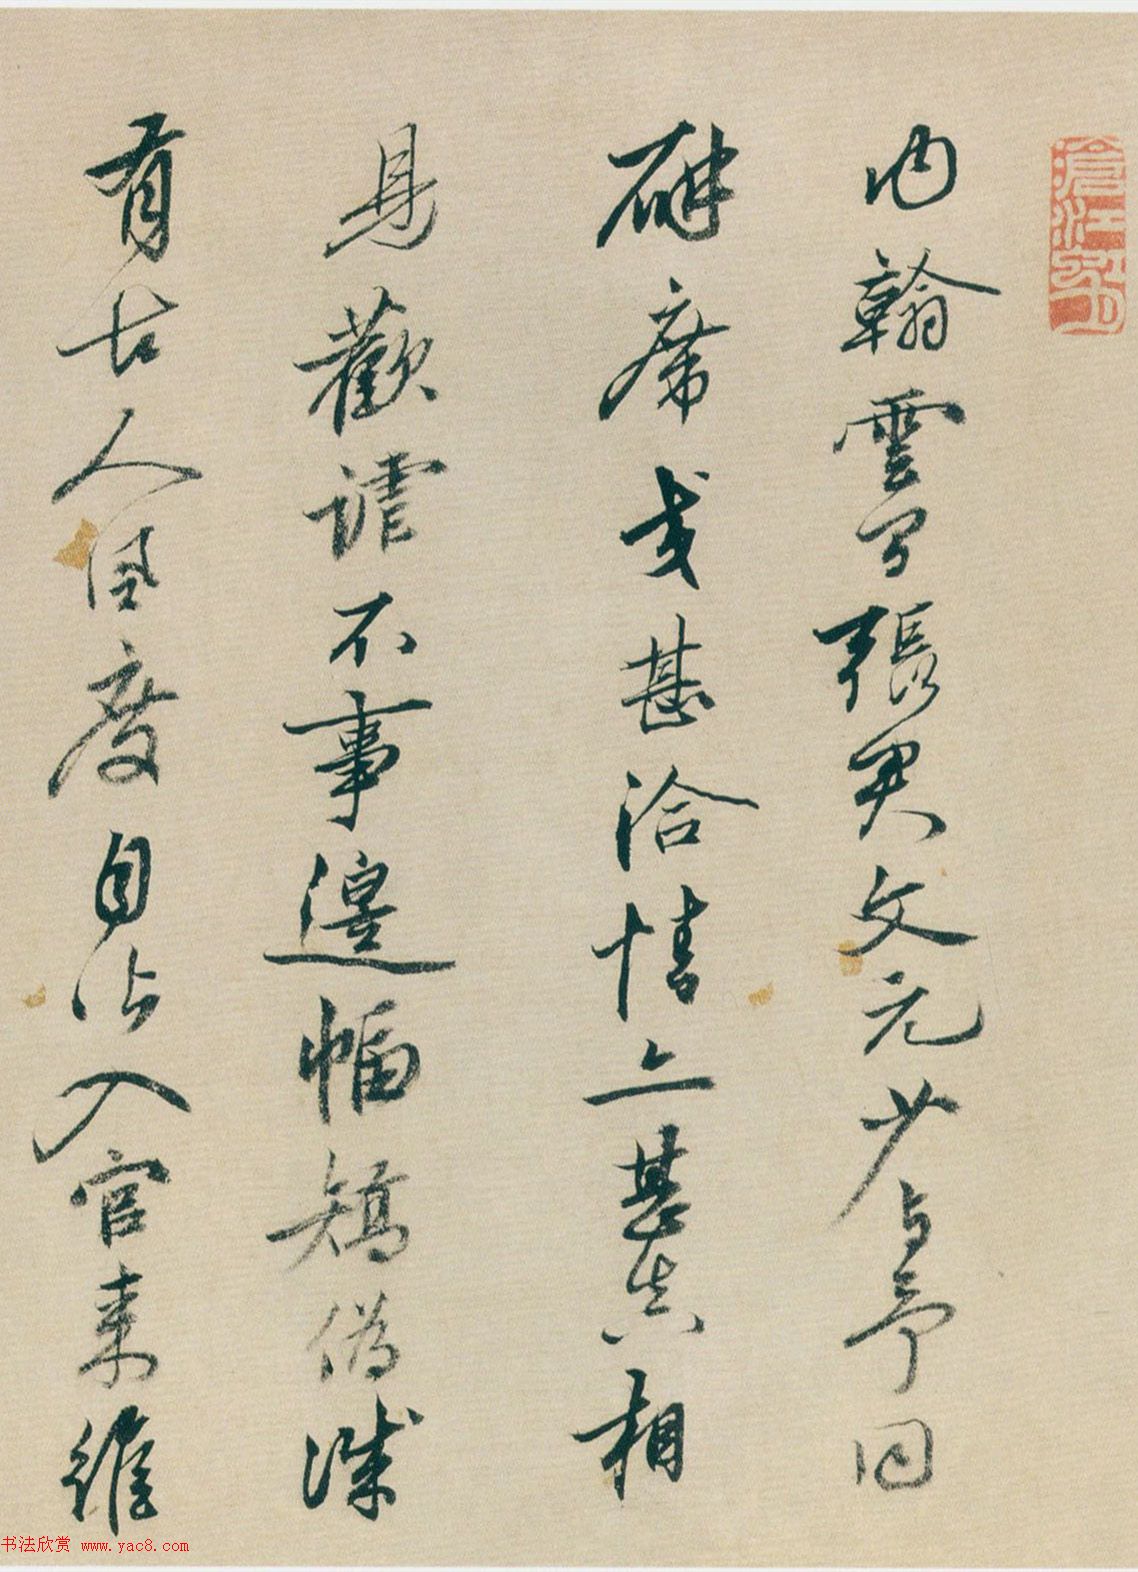 內翰雲間張君文元少與予同
研席或甚洽情亦甚真相
見歡謔不事邊幅矯偽誠
有古人風度自沾入官来雖
書法欣赏 www.yac8.com